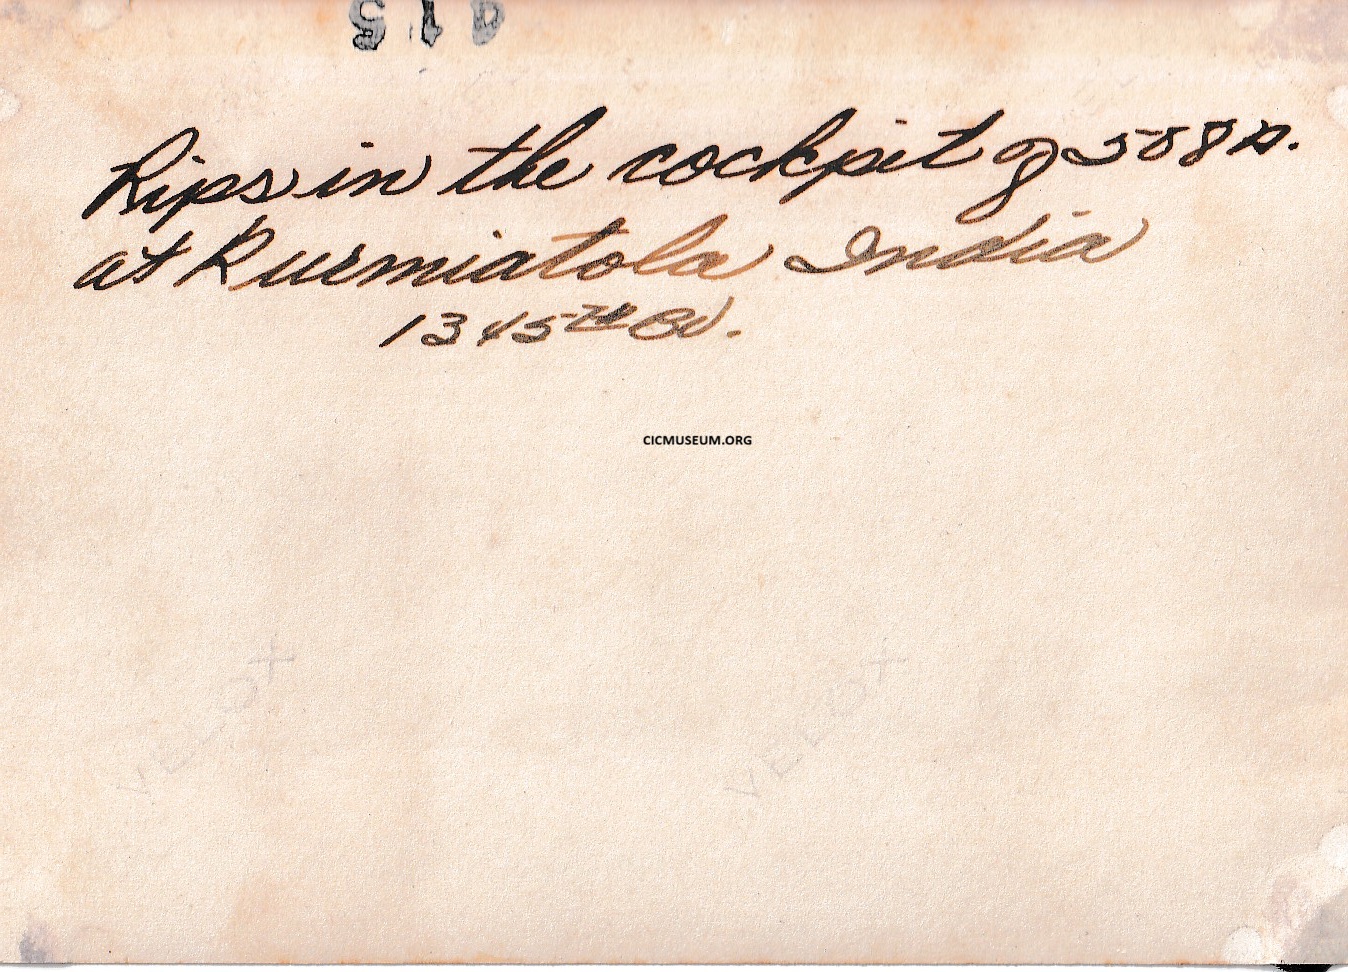 Rips in the cockpit of 508
at Kurmiatola India
1345th BU.
CICMUSEUM.ORG
VELOX VELOX